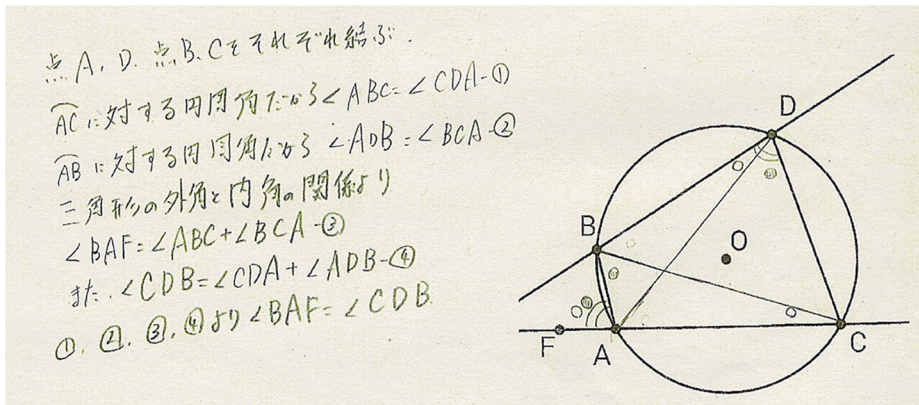 点A、D、点B、Cをそれぞれ結ぶ.
⌒ACに対する円周角だから∠ABC=∠CDA-①
⌒ABに対する円周角だから∠ADB=∠BCA-②
三角形の外角と内角の関係より
∠BAF=∠ABC+∠BCA-③
また、∠CDB=∠CDA+∠ADB-④
①、②、③、④より∠BAF=∠CDB.
D
B
O
F
A
C